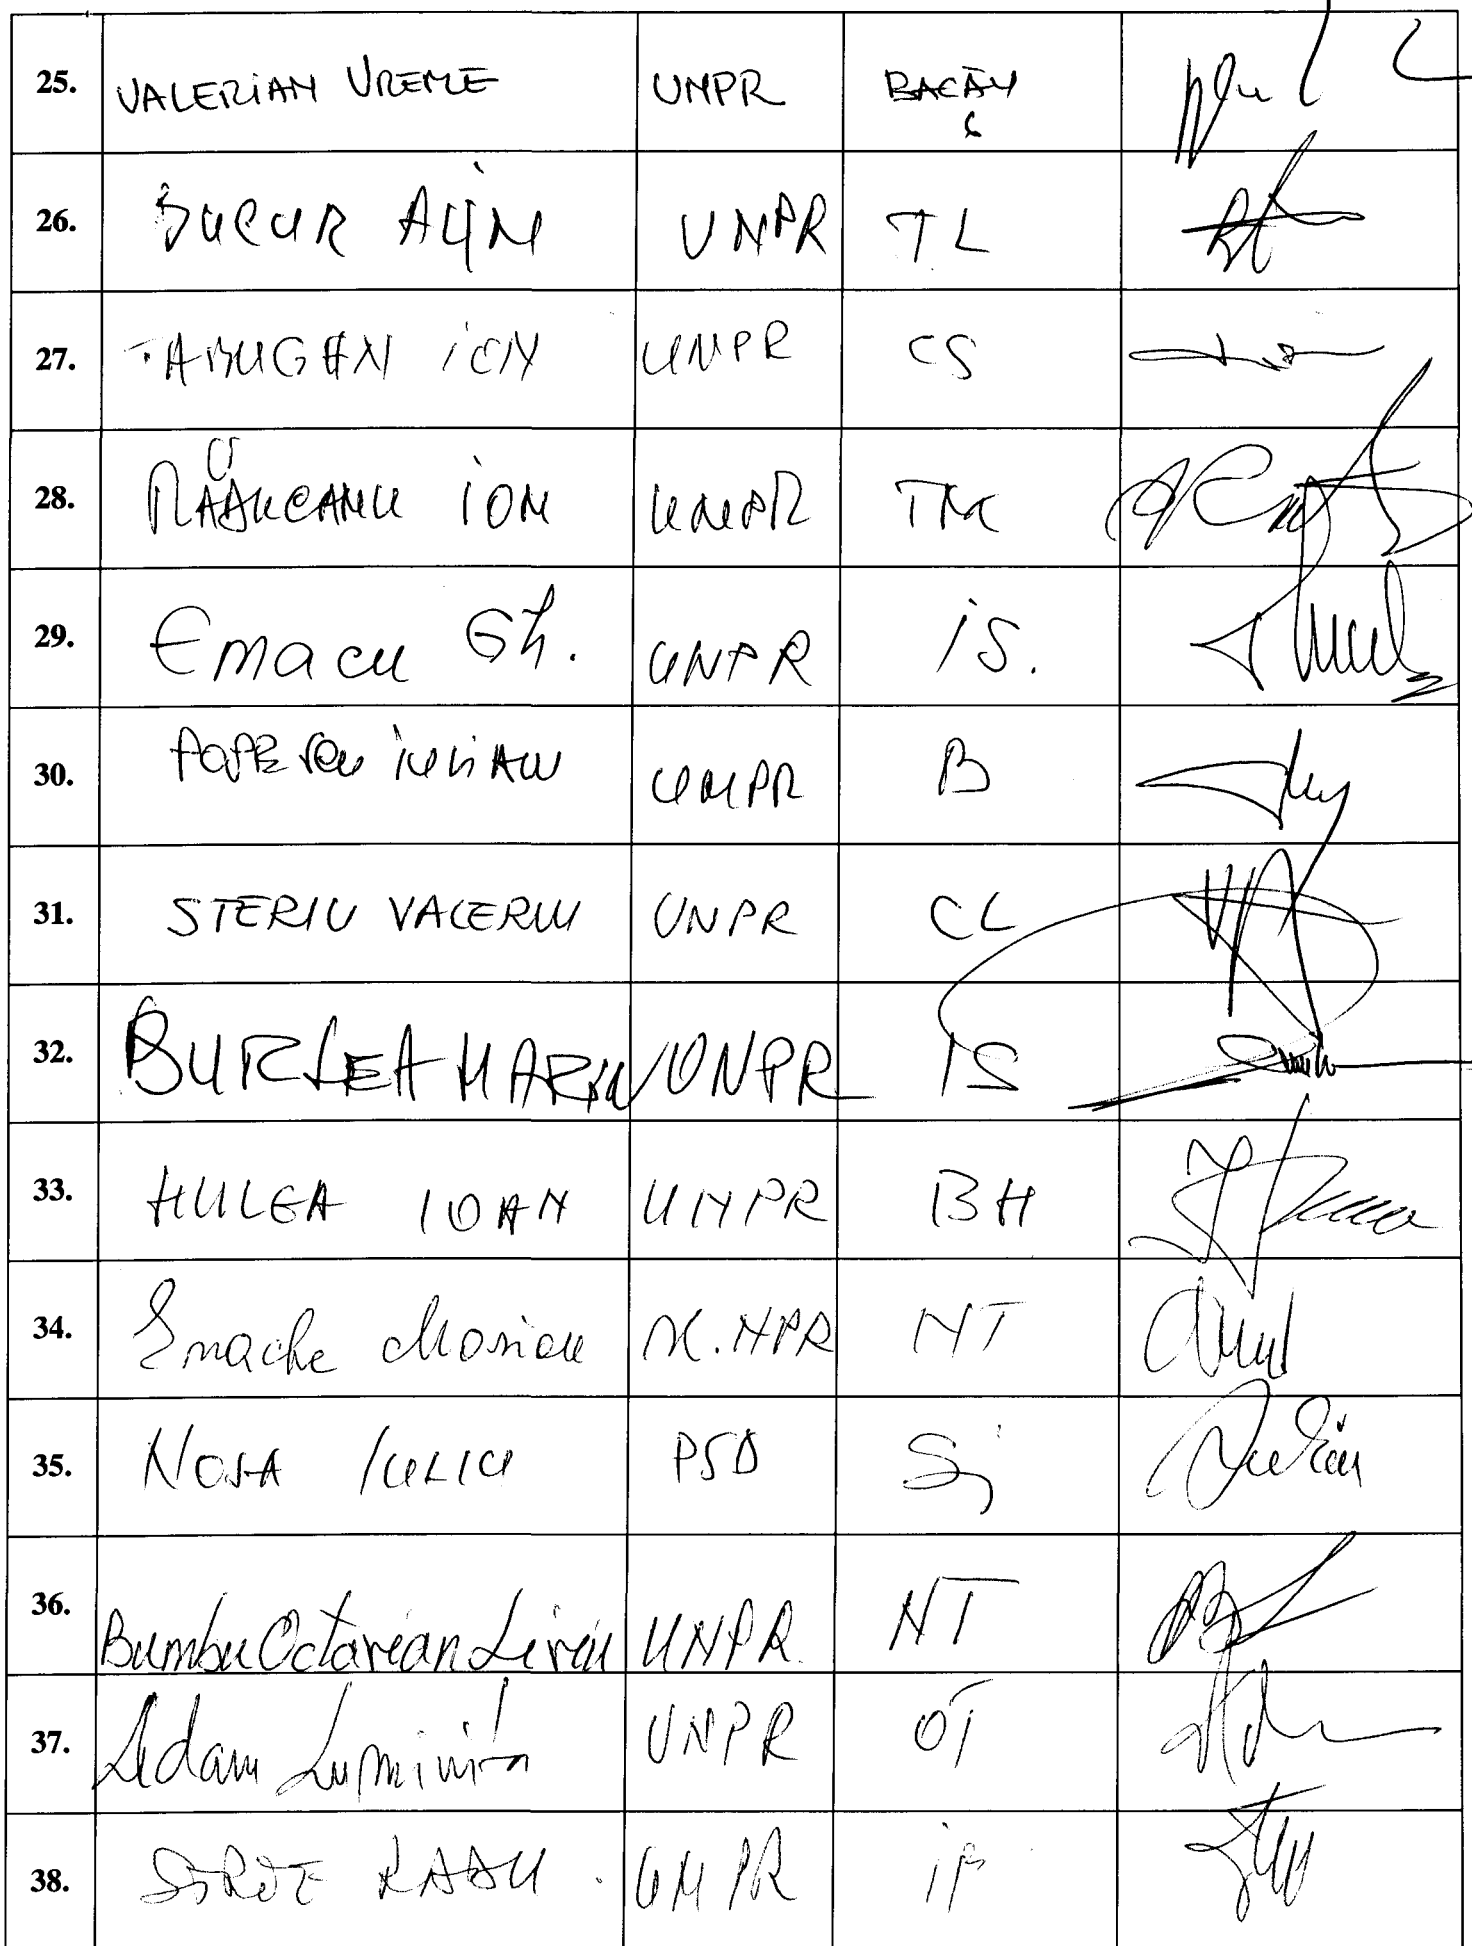 25. VALERIAN VREME UNPR BACĂU
26. BUCUR ALIN UNPR TL
27. TABUGAN ION UNPR CS
28. RĂDUCANU ION UNPR TM
29. Emacu Gh. UNPR IS.
30. POPESCU IULIAN UNPR B
31. STERIU VALERIU UNPR CL
32. BURLEA MARIN UNPR IS
33. HULEA IOAN UNPR BH
34. Enache Marian U.NPR NT
35. NOSA IULIU PSD SJ
36. Bumbu Octavian Liviu UNPR NT
37. Adam Luminița UNPR OT
38. RADU UNPR